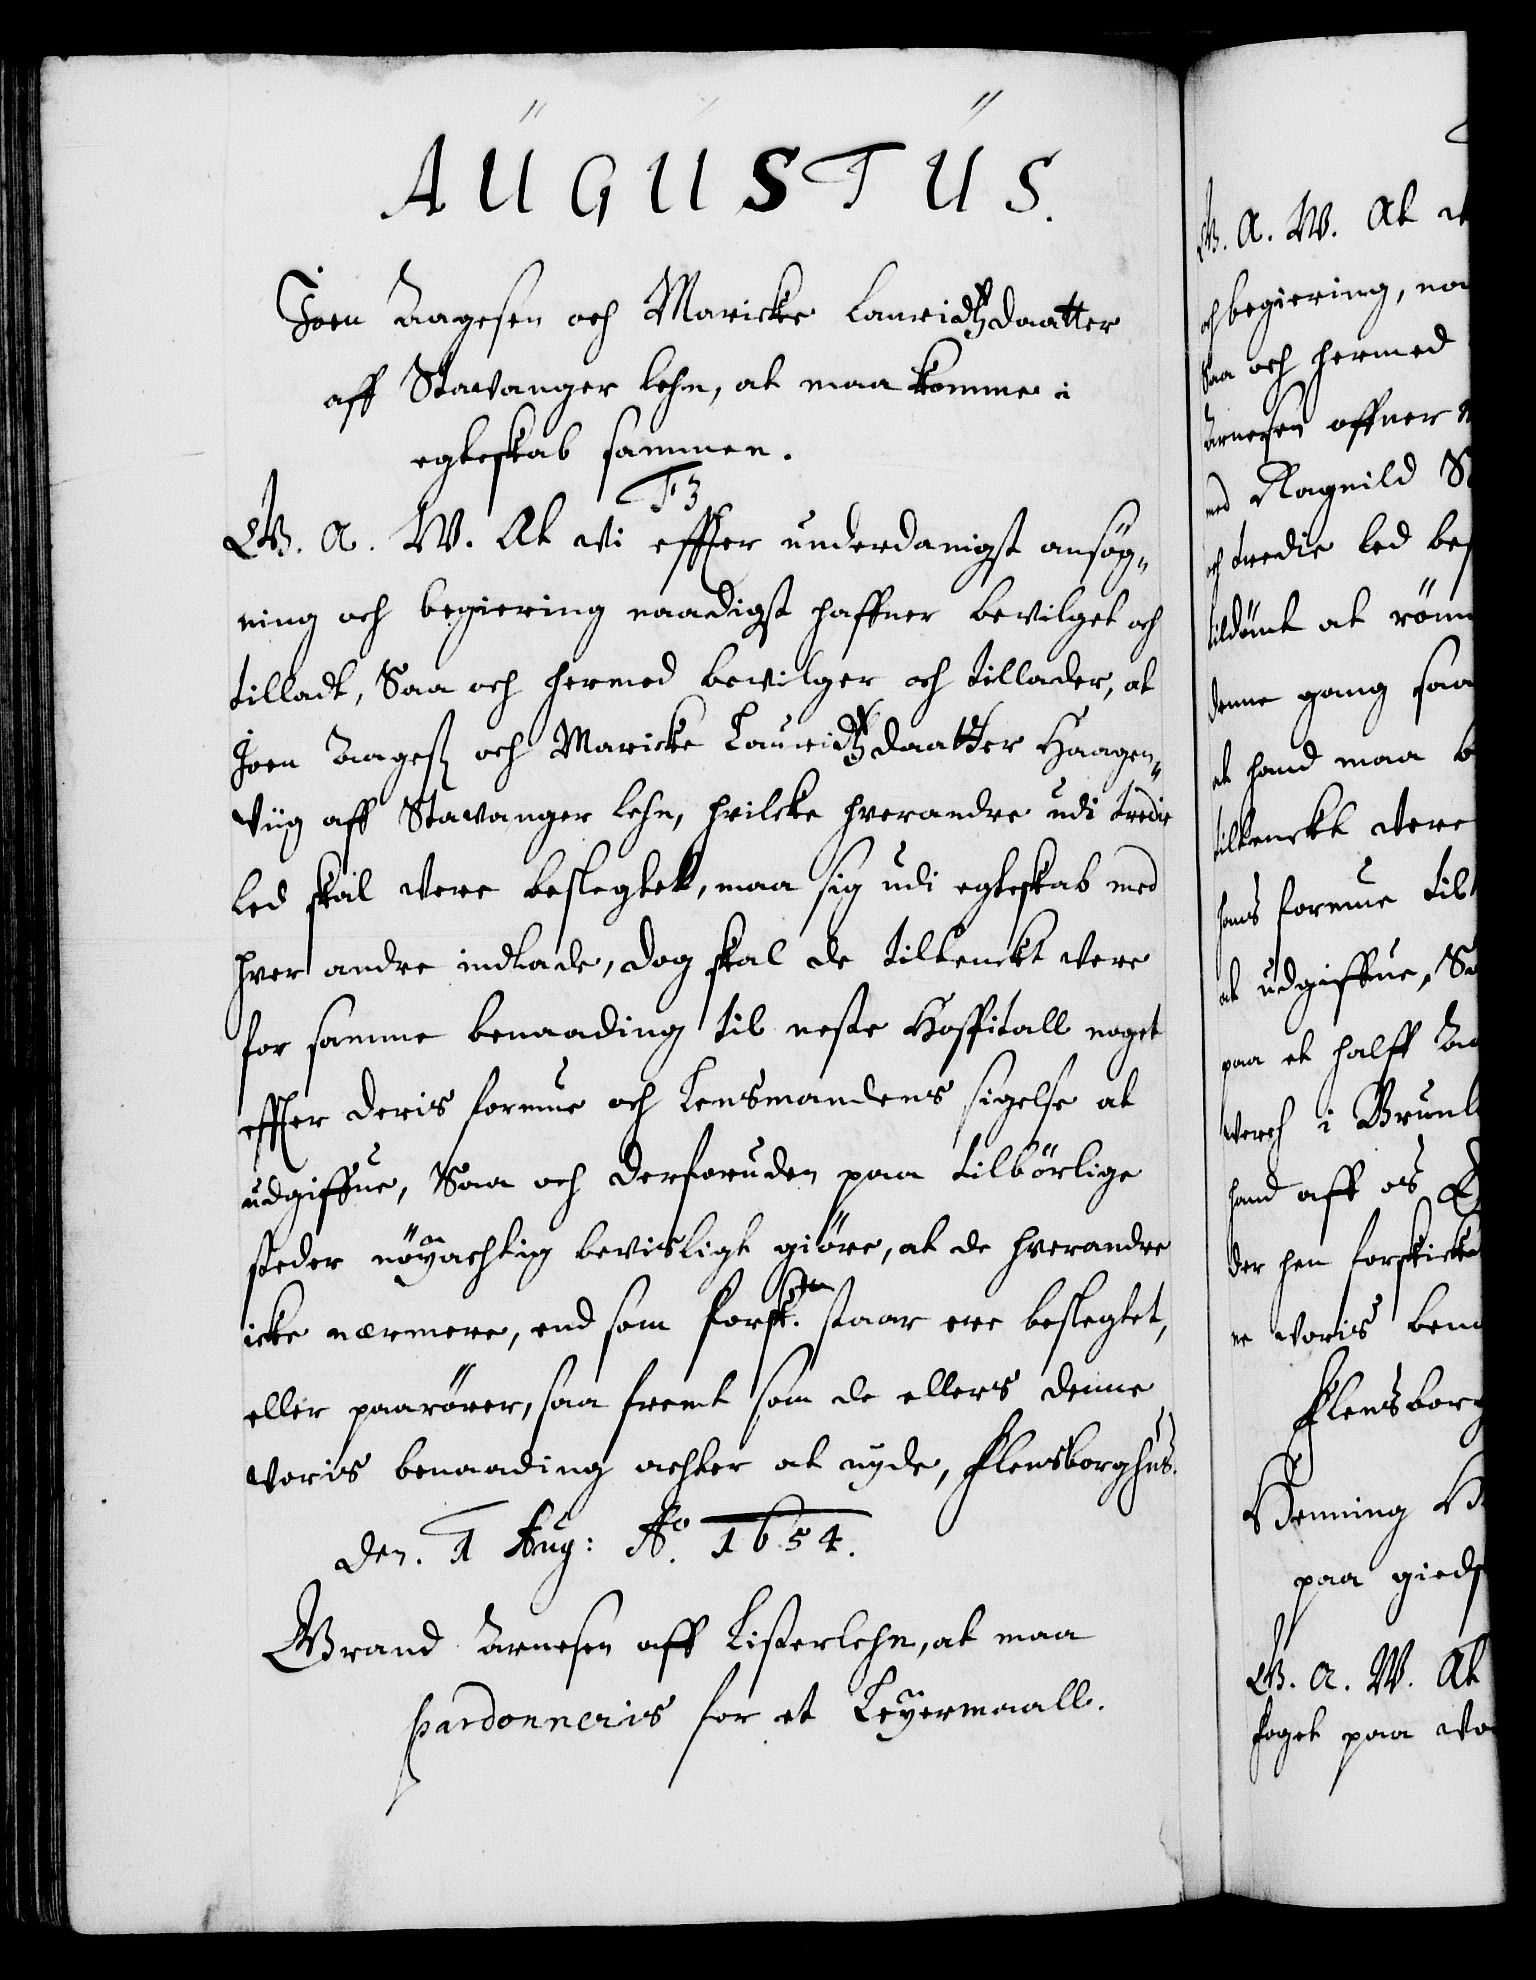 AUGUSTUS.
Joen Aagesen och Maricke Lauridtzdaatter
aff Stavanger Lehn, at maa komme i
egteskab sammen.
F3
G. A. W. At Vi effter underdanigst ansøg,,
ning och begiering naadigst haffuer bevilget och
tilladt, Saa och hermed bevilger och tillader, at
Joen Aages: och Maricke Lauridtzdaatter Haagen,,
viig aff Stavanger Lehn, hvilcke hverandre udi tredie
Led skal vere beslegtet, maa sig udi egteskab med
hver andre indlade, dog skal de tiltenckt vere
for samme benaading til neste Hospitall noget
effter deris formue och Lensmandens sigelse at
udgiffue, Saa och derforuden paa tilbörlige
steder nöyachtig bevisligt giöre, at de hverandre
icke nærmere, end som forsk:ten staar ere beslegtet,
eller paarörer, saa fremt som de ellers denne
voris benaading achter at nyde, Flensborghus.
den. 1 Aug: Ao. 1654.
Brand Arnesen aff Listerlehn, at maa
pardonneris for et Leyermaall.
G. A. W. At
och begiering, naa
Saa och hermed
Arnesen offner
med Ragnild
och tredie Led bes
tildömt at röm
denne gang saa
at hand maa
tiltenckt vere
hans formue til
at udgiffue, Sa
paa et halff Aa
verch i Brunl
hand aff os
der hen forskicke
ne voris bena
Flensborg
Henning
paa gieds
G. A. W. At
foget paa vo